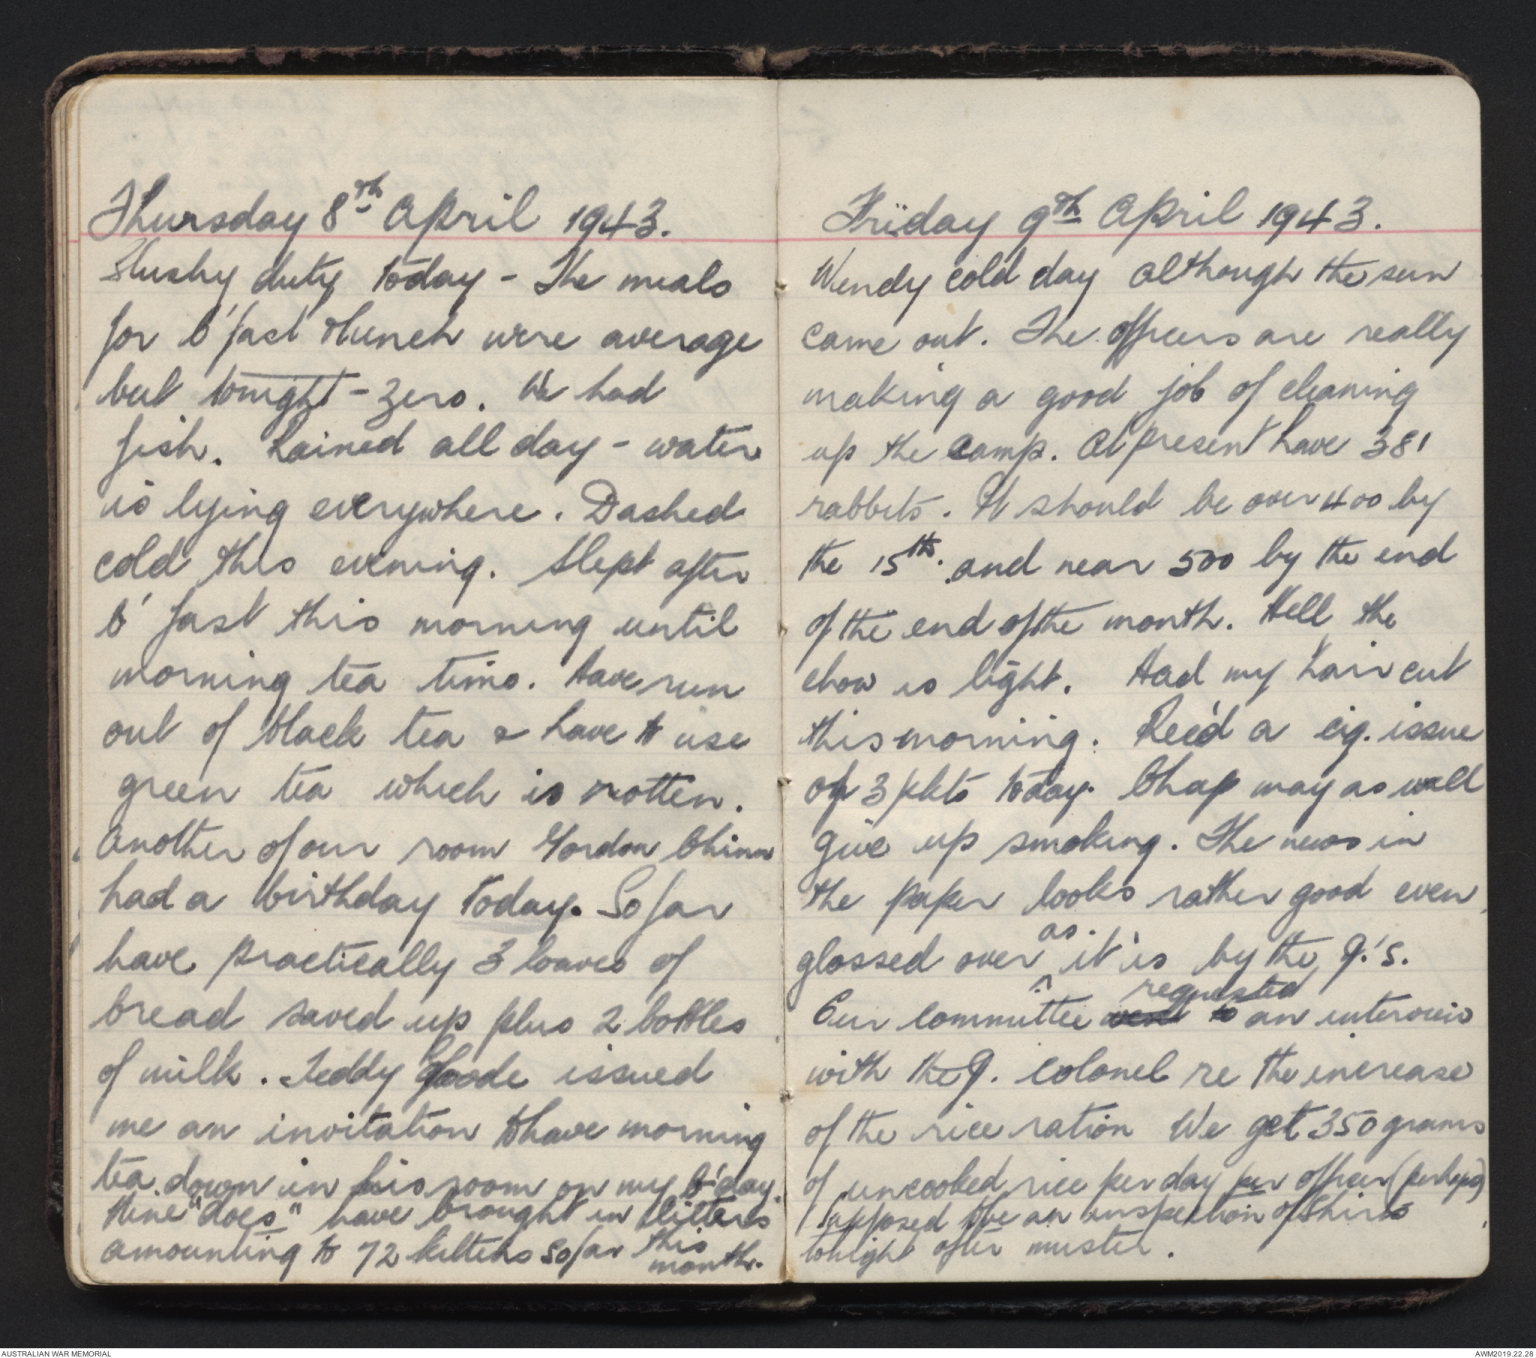 Thursday 8th April 1943.
Slushy duty today - The meals
for b'fast & lunch were average
but tonight - zero. We had
fish. Rained all day - water
is lying everywhere. Dashed
cold this evening. Slept after
b'fast this morning until
morning tea time. Have run
out of black tea & have to use
green tea which is rotten.
Another of our room Gordon Chinn
had a birthday today. So far
have practically 3 loaves of
bread saved up plus 2 bottles
of milk. Teddy Goode issued
me an invitation to have morning
tea down in his room on my b'day.
Nine "does" have brought in litters
amounting to 72 kittens so far this
month.
Friday 9th April 1943.
Windy cold day although the sun
came out. The officers are really
making a good job of cleaning
up the camp. At present have 381
rabbits. It should be over 400 by
the 15th. and near 500 by the end
of the end of the month. Hell the
chow is light. Had my hair cut
this morning. Rec'd a cig. issue
of 3 pkts today. Chap may as well
give up smoking. The news in
the paper looks rather good even
glossed over as it is by the J.'s.
Our committee went to requested an interview
with the J. colonel re the increase
of the rice ration We get 350 grams
of uncooked rice per day per officer (perhaps)
Supposed to be an inspection of
tonight after muster.